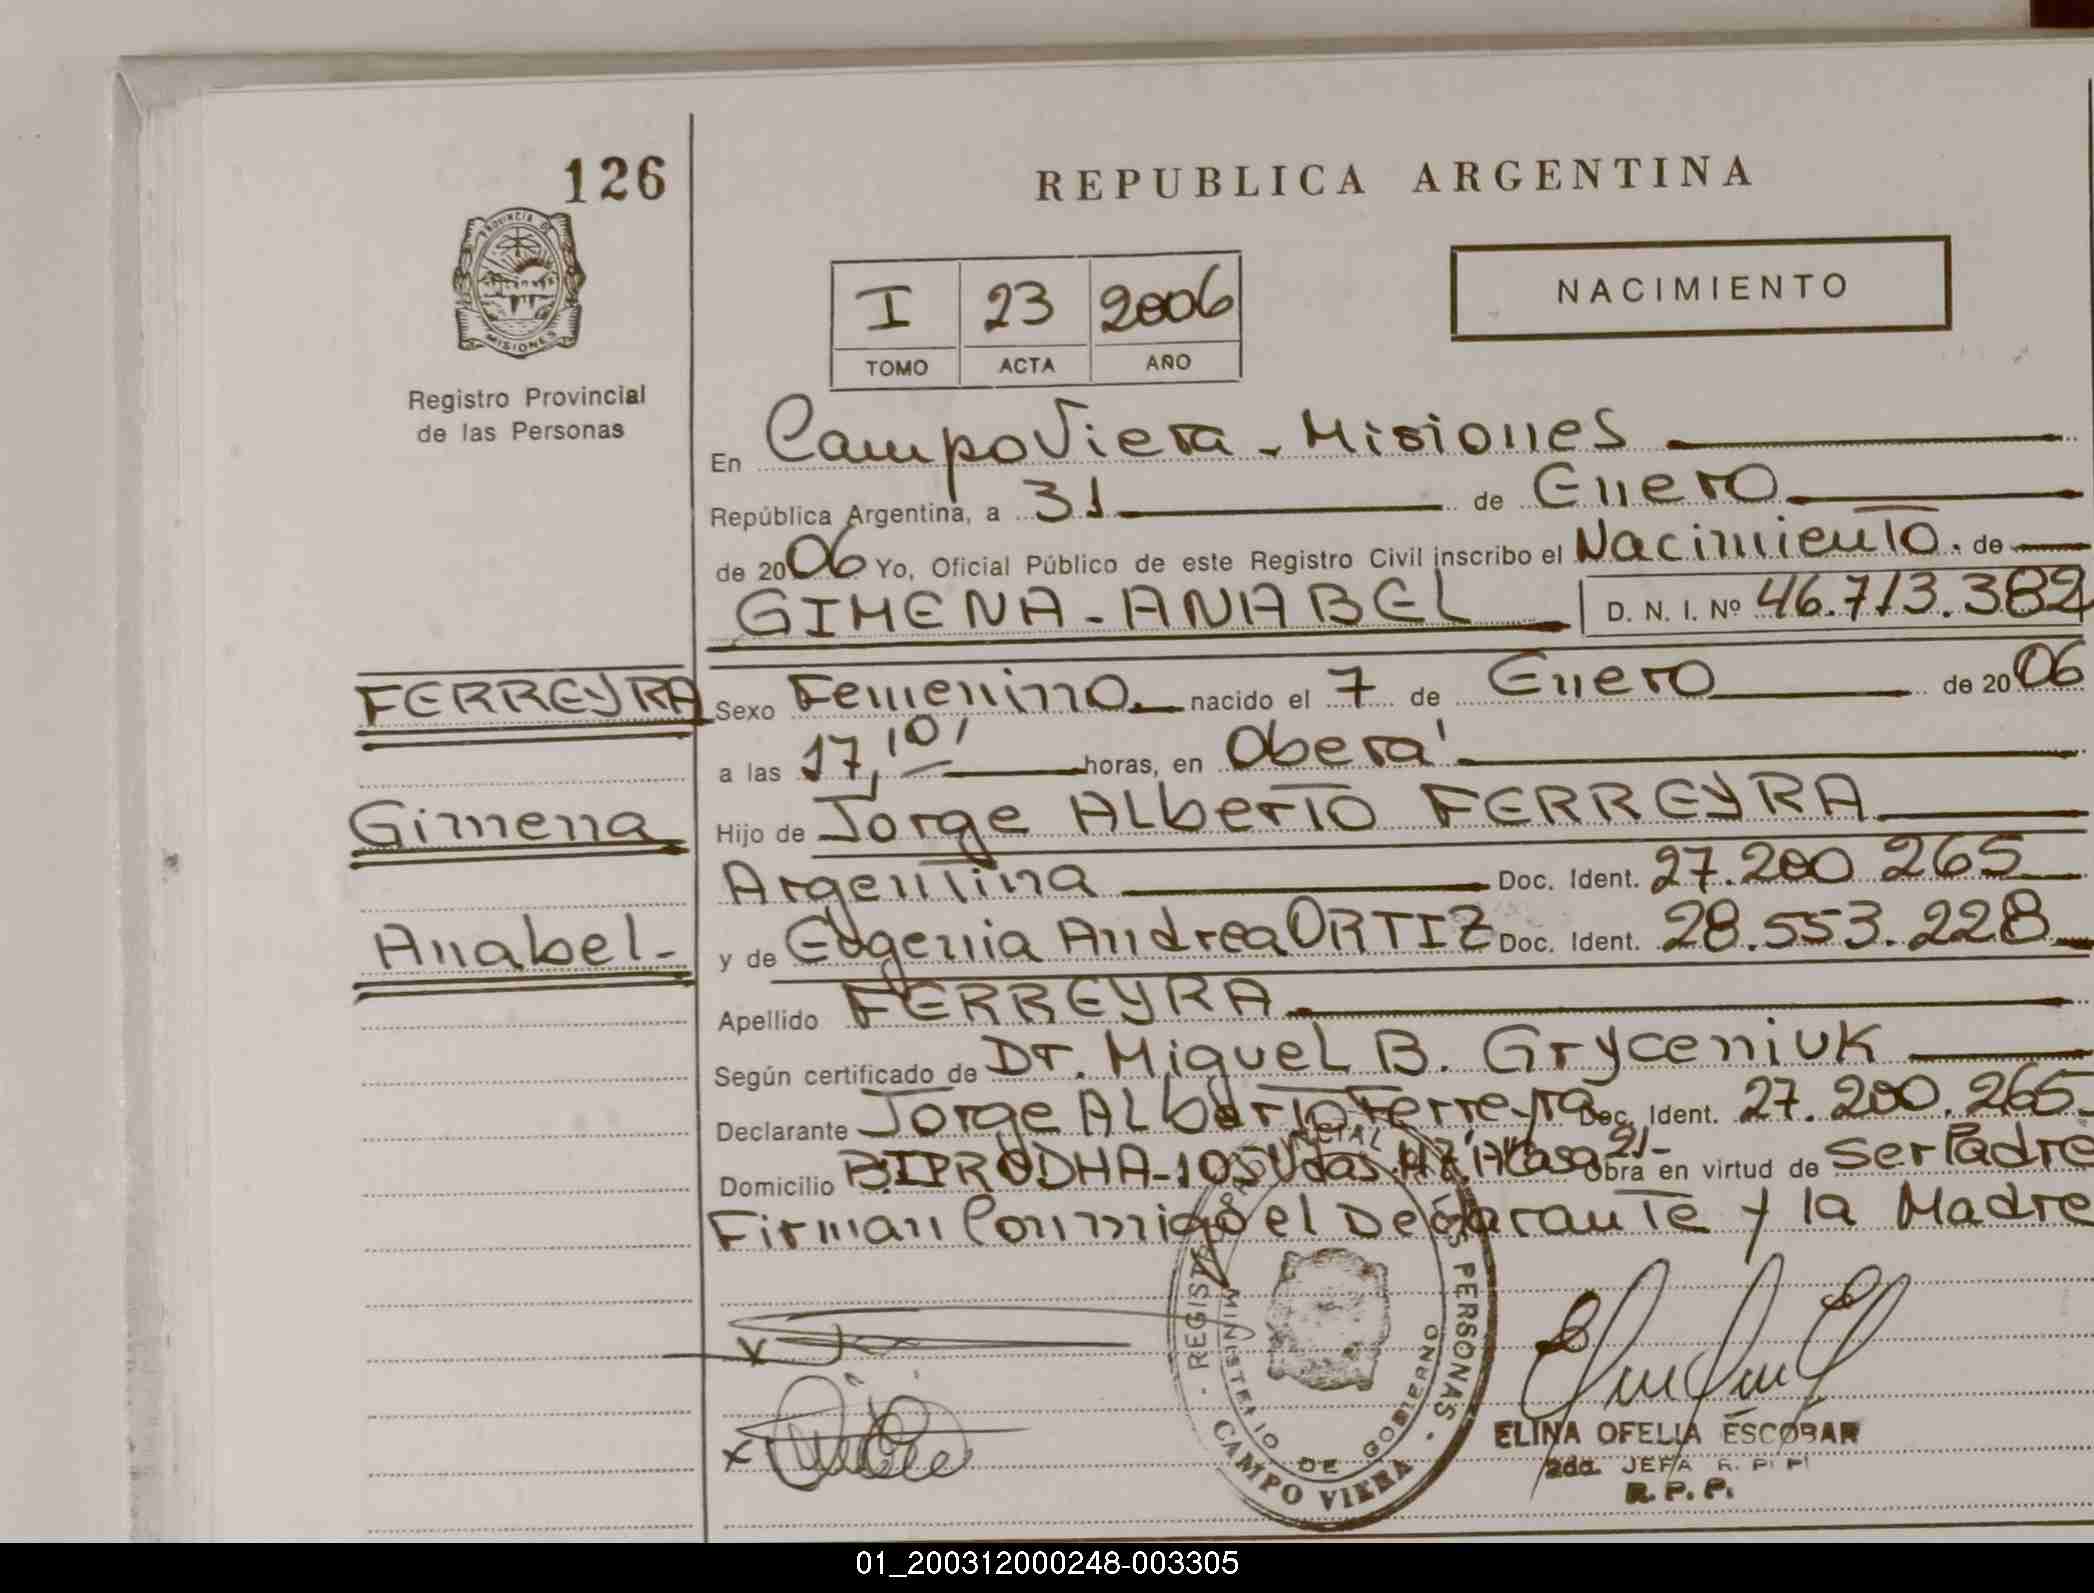 126
PROVINCIA DE
MISIONES
Registro Provincial
de las Personas
REPUBLICA ARGENTINA
I 23 2006
TOMO ACTA AÑO
NACIMIENTO
En Campo Viera - Misiones
República Argentina, a 31 de Enero
de 2006 Yo, Oficial Público de este Registro Civil inscribo el Nacimiento. de
GIMENA - ANABEL D. N. I. Nº 46.713.382
FERREYRA
Gimena
Anabel-
Sexo Femenino. nacido el 7 de Enero de 2006
a las 17,10' horas, en Oberá
Hijo de Jorge ALberto FERREYRA
Argentina Doc. Ident. 27.200 265
y de Eugenia Andrea ORTIZ Doc. Ident. 28.553.228
Apellido FERREYRA
Según certificado de Dr. Miguel B. Gryceniuk
Declarante Jorge ALberto Ferreyra Doc. Ident. 27.200.265
Domicilio BIPRODHA-105 Vdas. MZ "A" Casa 21- Obra en virtud de ser Padre
Firman Conmigo el Declarante y la Madre
REGISTRO PROVINCIAL DE LAS PERSONAS
MINISTERIO DE GOBIERNO
CAMPO VIERA
x
x
ELINA OFELIA ESCOBAR
2da. JEFA
R. P. P.
01_200312000248-003305